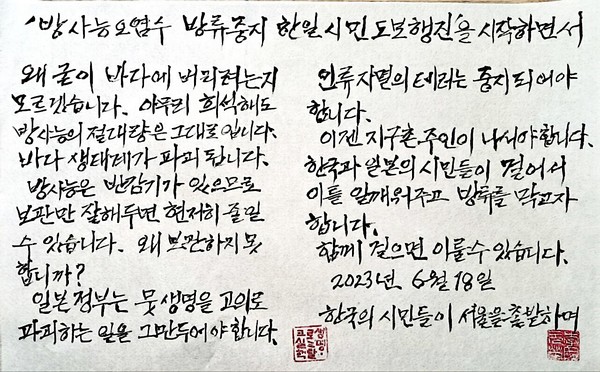 '방사능오염수 방류중지 한일시민도보행진'을 시작하면서
왜 굳이 바다에 버리려는지
모르겠습니다. 아무리 희석해도
방사능의 절대량은 그대로입니다.
바다 생태계가 파괴 됩니다.
방사능은 반감기가 있으므로
보관만 잘해두면 현저히 줄일
수 있습니다. 왜 보관하지 못
합니까?
일본정부는 뭇 생명을 고의로
파괴하는 일을 그만두어야 합니다.
인류자멸의 테러는 중지되어야
합니다.
이젠 지구촌 주인이 나서야 합니다.
한국과 일본의 시민들이 걸어서
이를 일깨워주고 방류를 막고자
합니다.
함께 걸으면 이룰수 있습니다.
2023년 6월 18일
한국의 시민들이 서울을 출발하며